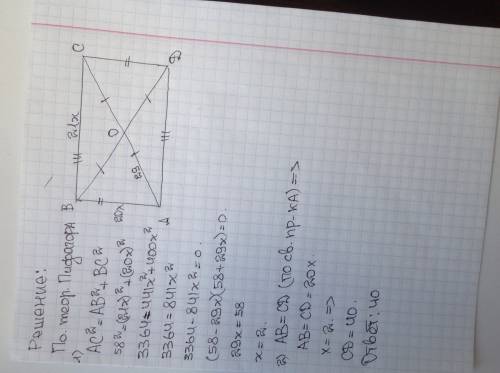 Решение:
По теор. Пифагора
1) AC² = AB² + BC²
58² = (21x)² + (20x)²
3364 = 441x² + 400x²
3364 = 841x²
3364 - 841x² = 0.
(58 - 29x)(58 + 29x) = 0.
29x = 58
x = 2.
2) AB = CD (по св. пр-ка) =>
AB = CD = 20x.
x = 2. =>
CD = 40.
Ответ: 40
B
21x
C
20x
O
29
A
D